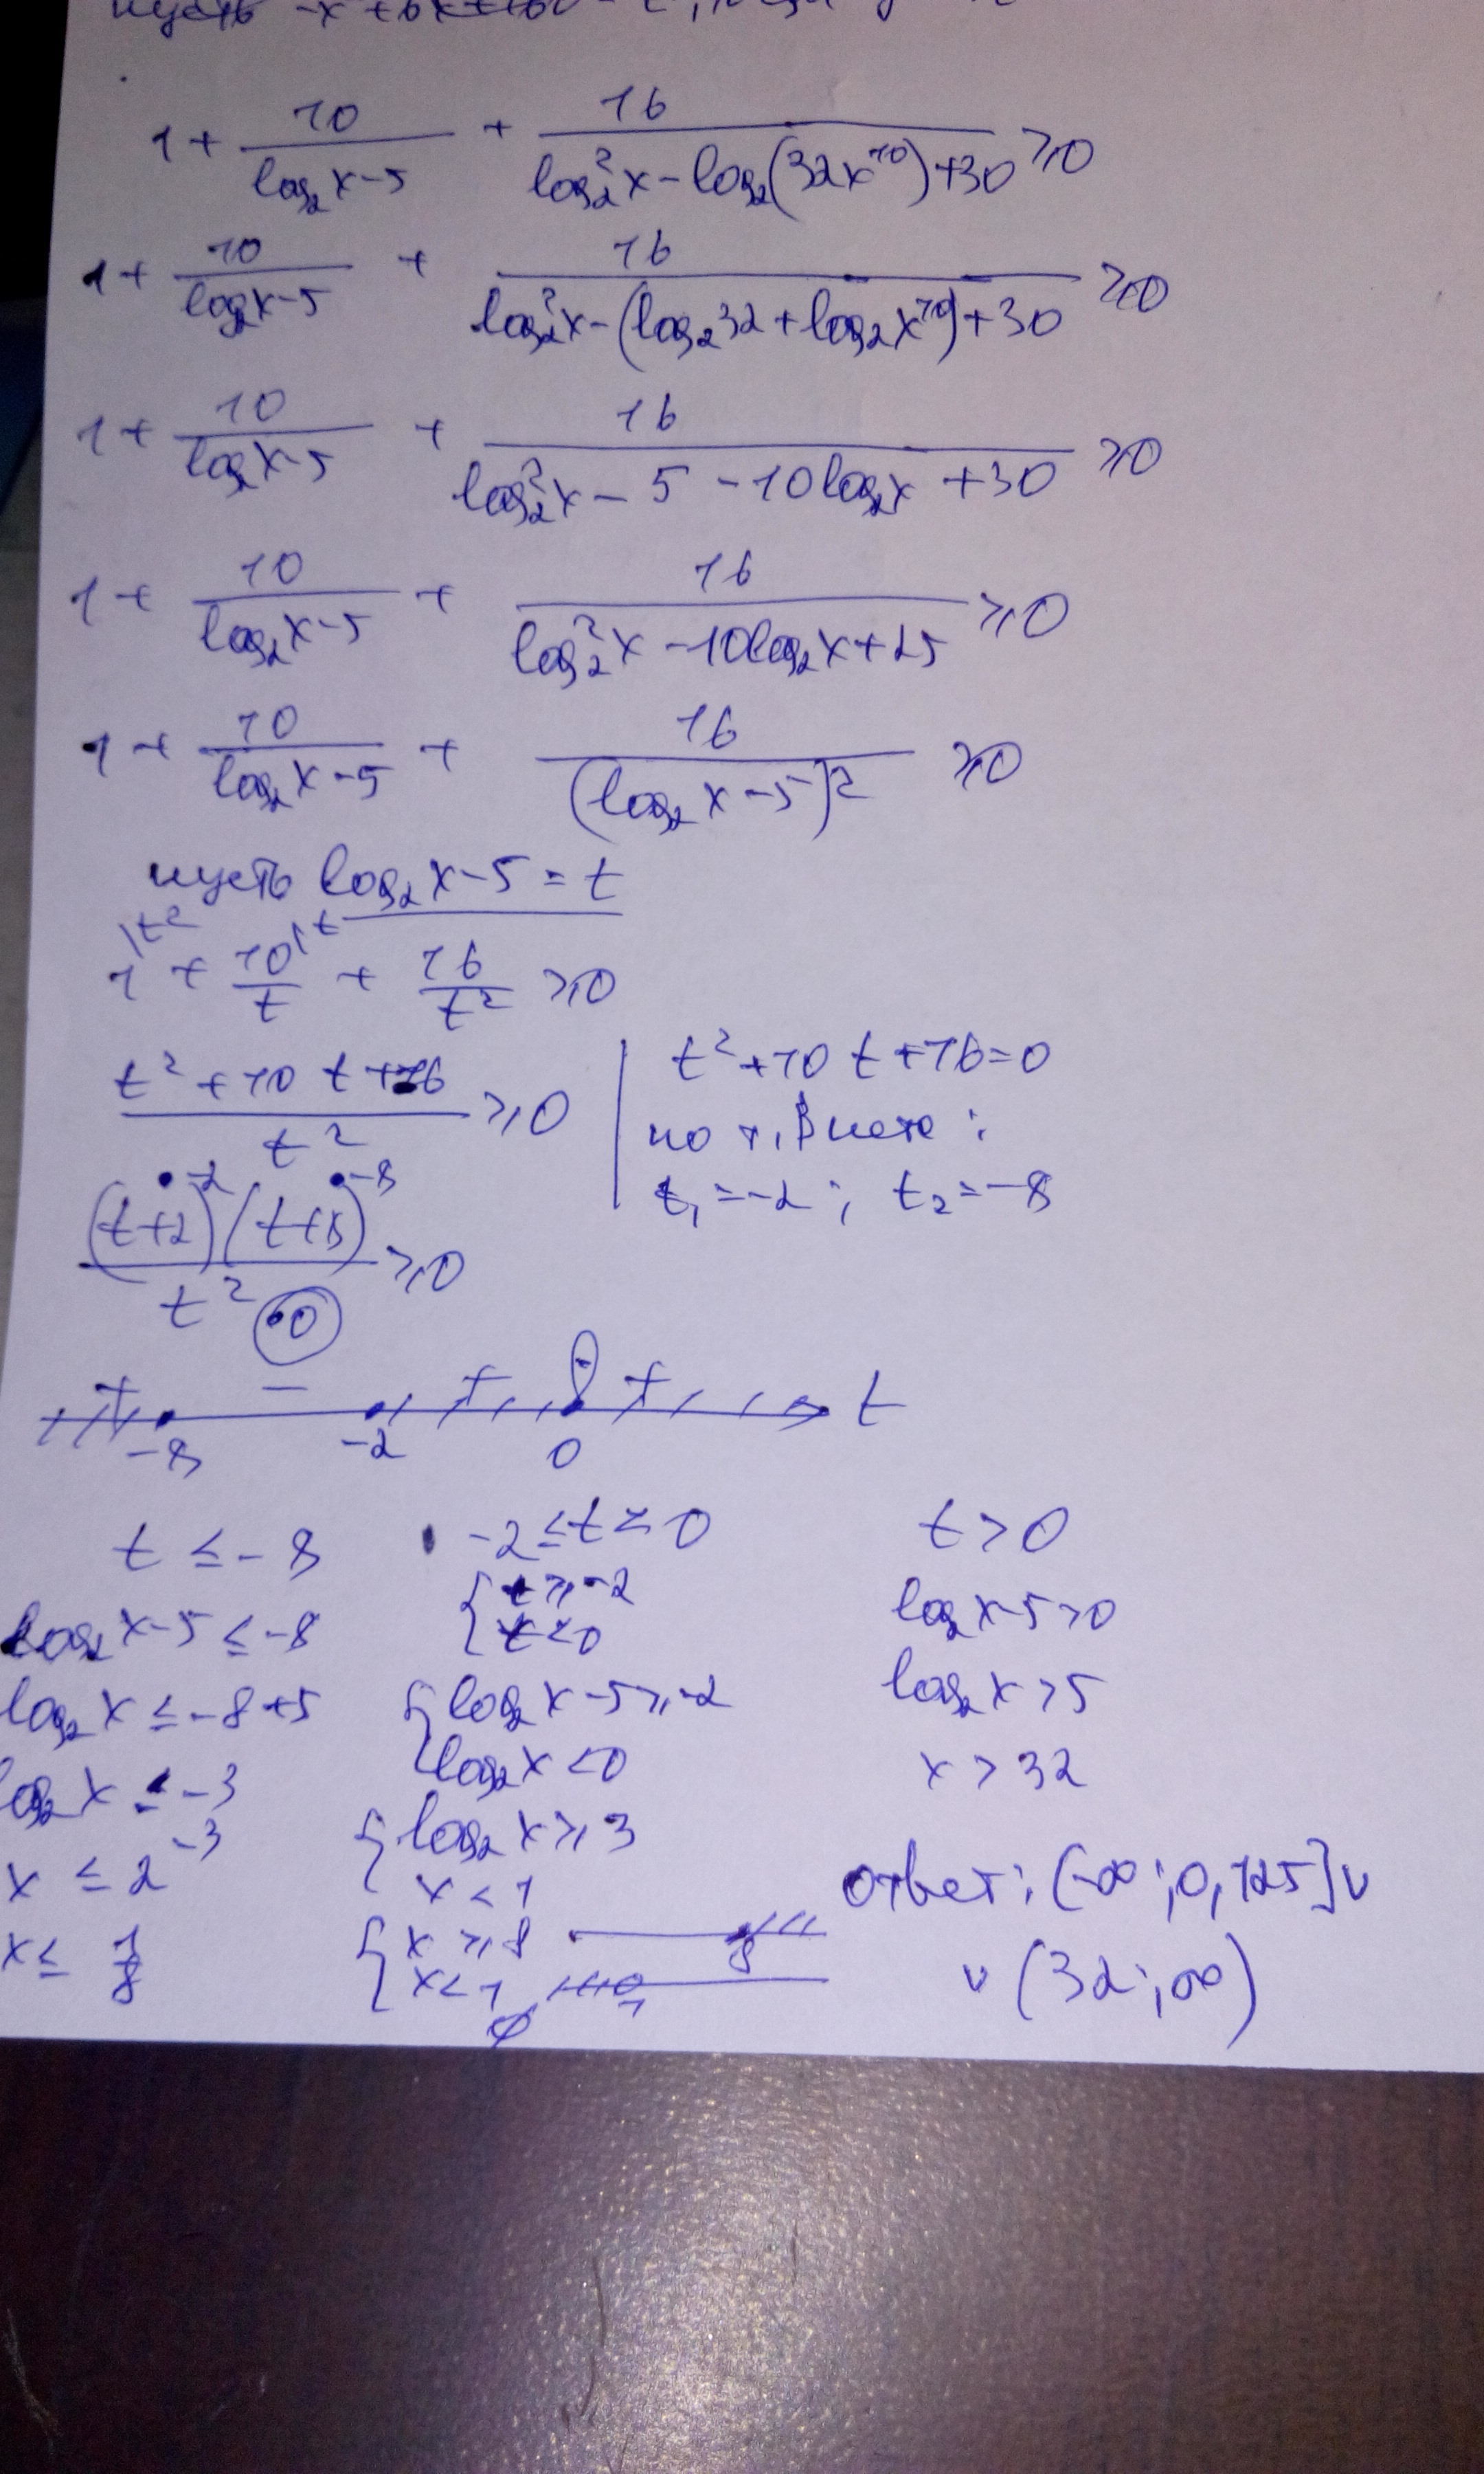 пусть
1 + 10/(log₂x-5) + 16/(log₂²x - log₂(32x¹⁰) + 30) ⩾ 0
1 + 10/(log₂x-5) + 16/(log₂²x - (log₂32 + log₂x¹⁰) + 30) ⩾ 0
1 + 10/(log₂x-5) + 16/(log₂²x - 5 - 10log₂x + 30) ⩾ 0
1 + 10/(log₂x-5) + 16/(log₂²x - 10log₂x + 25) ⩾ 0
1 + 10/(log₂x-5) + 16/(log₂x-5)² ⩾ 0
пусть log₂x-5 = t
1\t² + 10\t/t + 16/t² ⩾ 0
(t² + 10t + 16)/t² ⩾ 0
t² + 10t + 16 = 0
по т. Виета:
t₁ = -2; t₂ = -8
•-2 •-8
(t+2)(t+8)/t² ⩾ 0
•0
+ - + - + t
-8 -2 0
t ≤ -8
log₂x-5 ≤ -8
log₂x ≤ -8+5
log₂x ≤ -3
x ≤ 2⁻³
x ≤ 1/8
-2 ≤ t < 0
{ t ⩾ -2
t < 0
{ log₂x-5 ⩾ -2
log₂x < 0
{ log₂x ⩾ 3
x < 1
{ x ⩾ 8 8
x < 1 1
∅
t > 0
log₂x-5 > 0
log₂x > 5
x > 32
ответ: (-∞; 0,125] ∪
∪ (32; ∞)